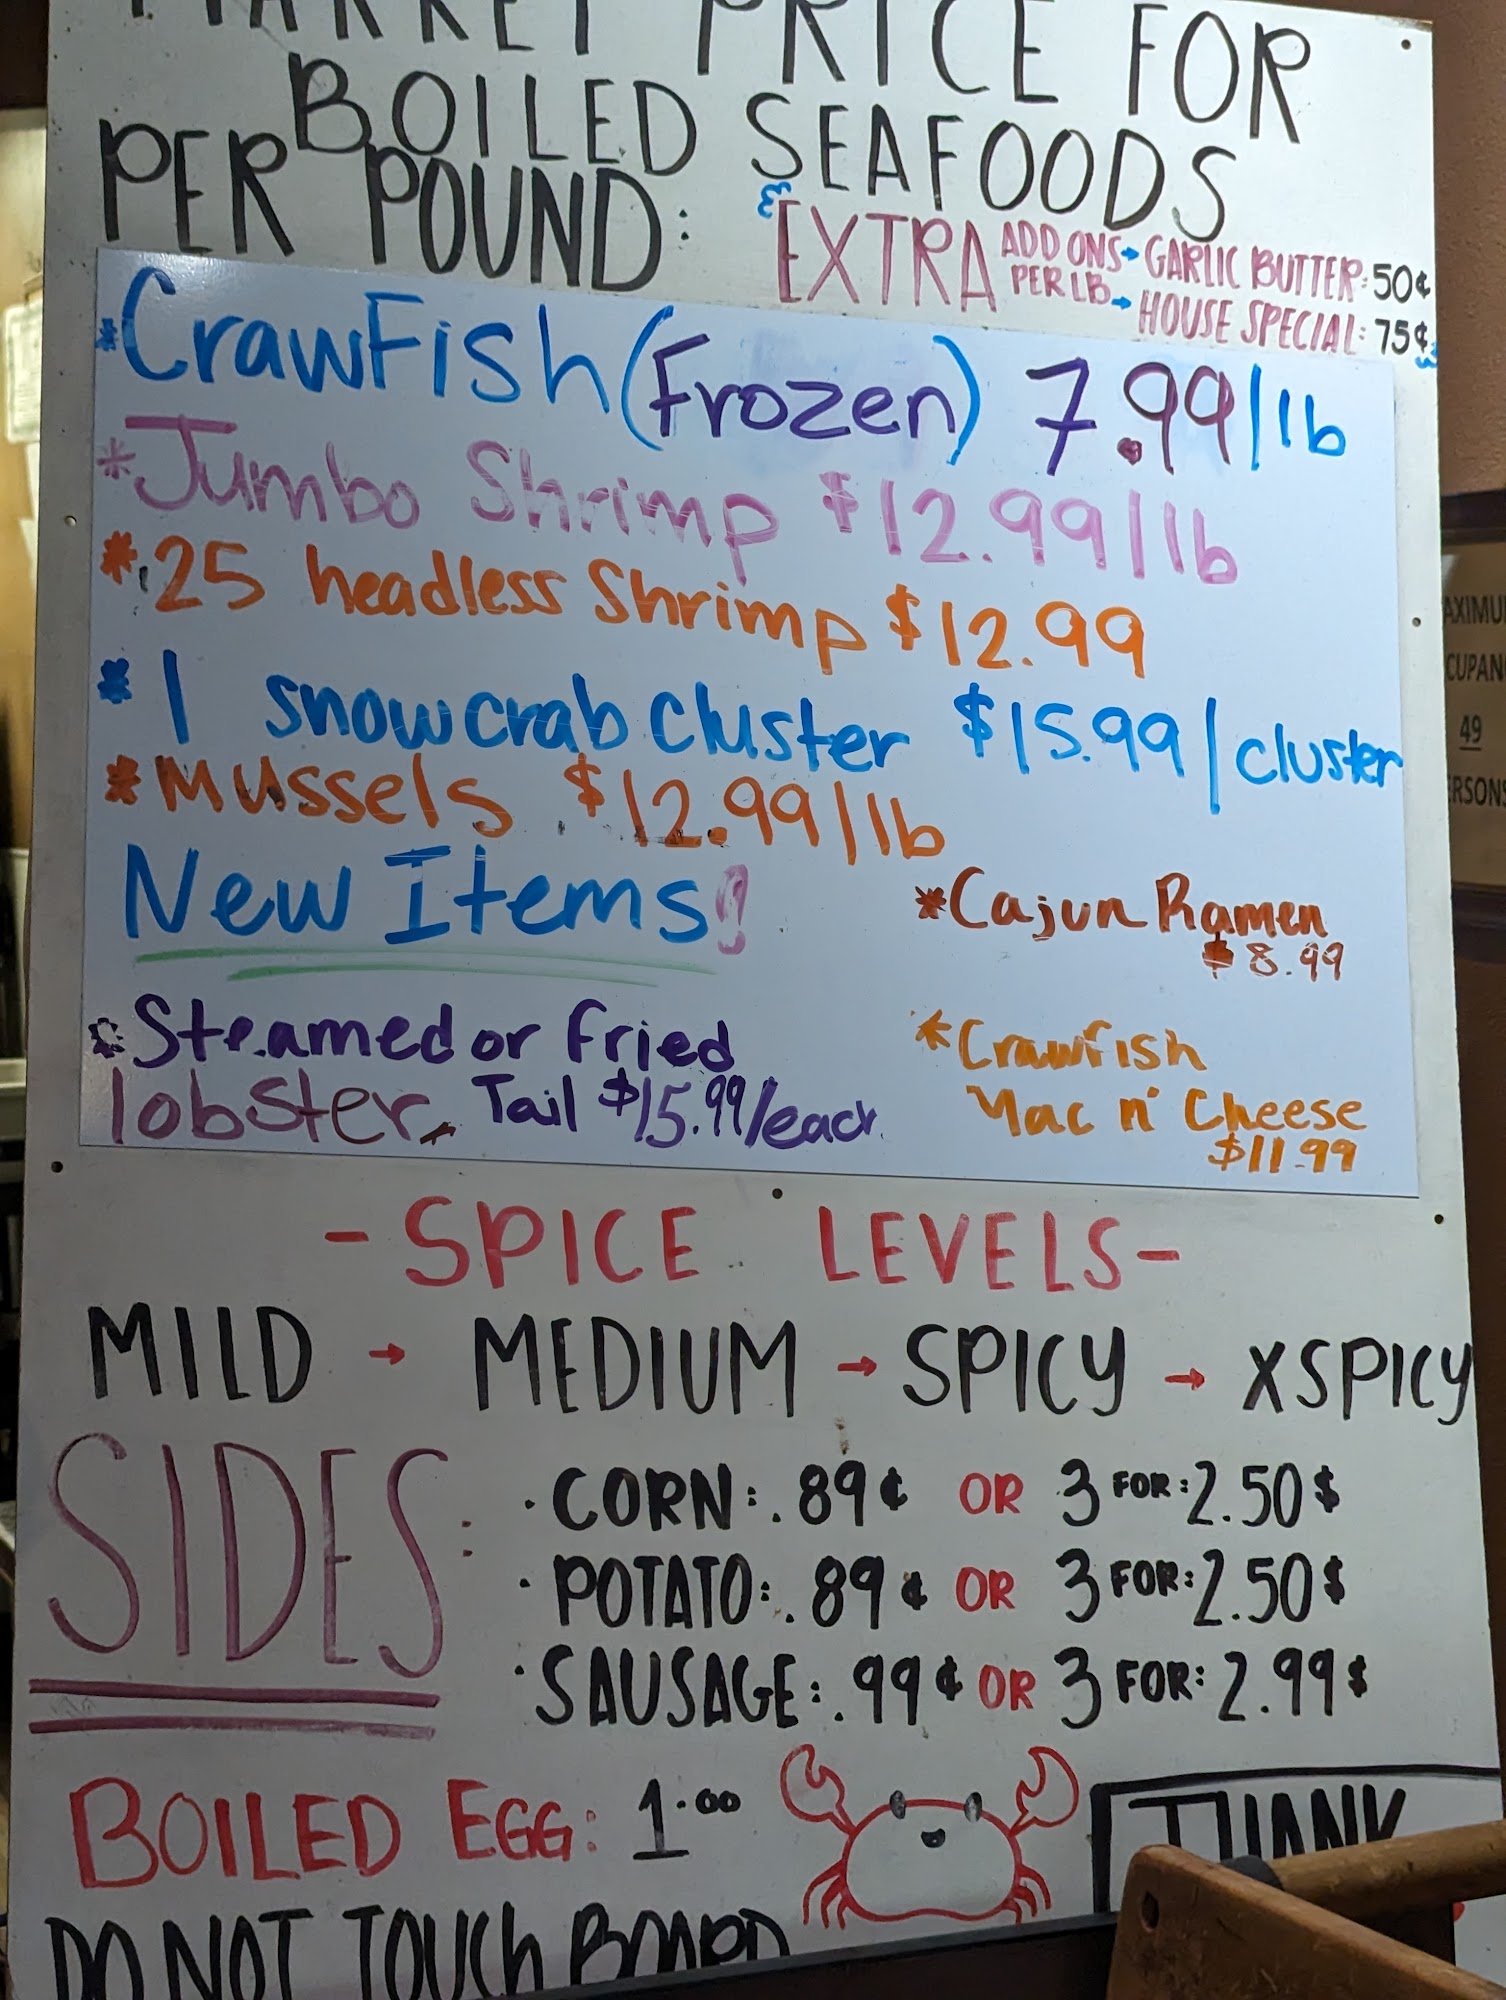 MARKET PRICE FOR
BOILED SEAFOODS
PER POUND:
EXTRA ADD ONS → GARLIC BUTTER: 50¢
PER LB → HOUSE SPECIAL: 75¢
*CrawFish (Frozen) 7.99/lb
*Jumbo Shrimp $12.99/lb
*25 headless Shrimp $12.99
*1 snowcrab cluster $15.99/cluster
*Mussels $12.99/lb
New Items!
*Cajun Ramen
$8.99
*Steamed or Fried
lobster Tail $15.99/each
*Crawfish
Mac n' Cheese
$11.99
-SPICE LEVELS-
MILD → MEDIUM → SPICY → XSPICY
SIDES:
·CORN: .89¢ OR 3 FOR: 2.50$
·POTATO: .89¢ OR 3 FOR: 2.50$
·SAUSAGE: .99¢ OR 3 FOR: 2.99$
BOILED EGG: 1.00
THANK
DO NOT TOUCH BOARD
AXIMU
CUPAN
49
ERSONS